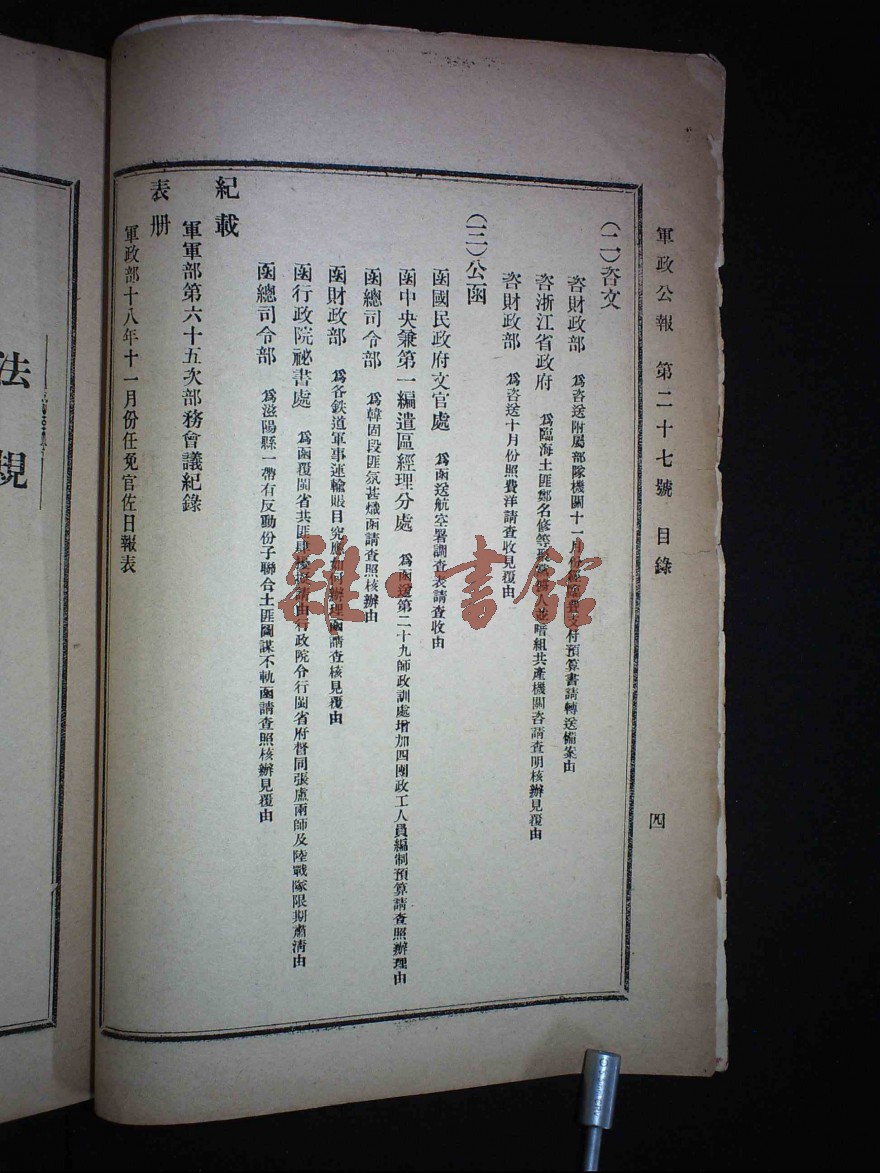 軍政公報 第二十七號 目錄 四
(二)咨文
咨財政部 爲咨送附屬部隊機關十一月份經臨費支付預算書請轉送備案由
咨浙江省政府 爲臨海土匪鄭名修等聚 人並暗組共產機關咨請查明核辦見覆由
咨財政部 爲咨送十月份照費洋請查收見覆由
(三)公函
函國民政府文官處 爲函送航空署調查表請查收由
函中央兼第一編遣區經理分處 爲函送第二十九師政訓處增加四團政工人員編制預算請查照辦理由
函總司令部 爲韓固段匪氛甚熾函請查照核辦由
函財政部 爲各鉄道軍事運輸賬目究應如何辦理函請查核見覆由
函行政院祕書處 爲函覆閩省共匪肆擾 請由行政院令行閩省府督同張盧兩師及陸戰隊限期肅清由
函總司令部 爲滋陽縣一帶有反動份子聯合土匪圖謀不軌函請查照核辦見覆由
紀載
軍軍部第六十五次部務會議紀錄
表册
軍政部十八年十一月份任免官佐日報表
法規
雜·書館